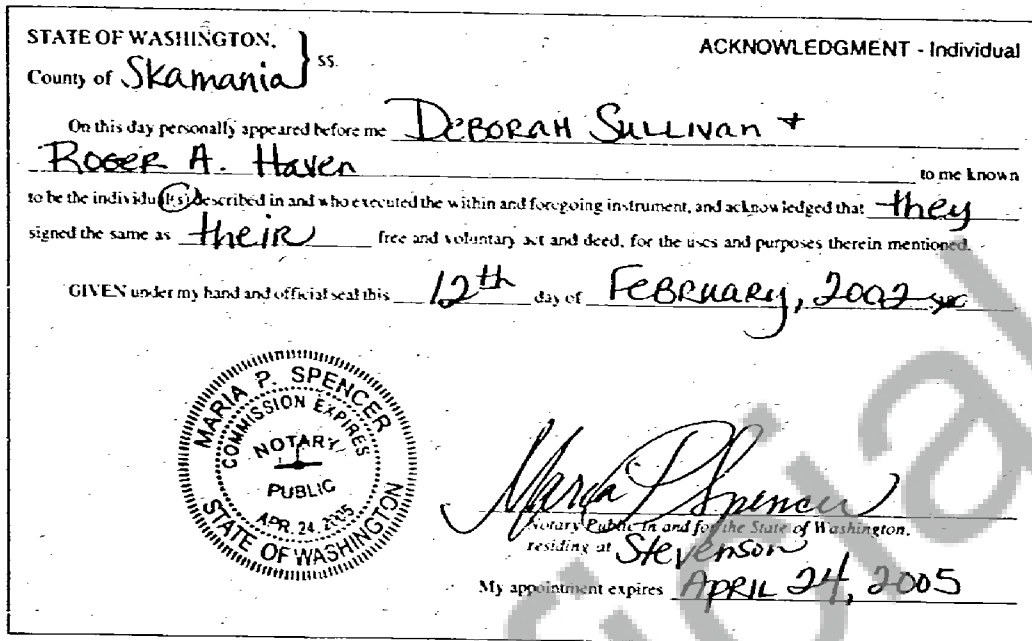 STATE OF WASHINGTON,
County of Skamania } ss.
ACKNOWLEDGMENT - Individual
On this day personally appeared before me DEBORAH SULLIVAN +
ROGER A. Haven to me known
to be the individual(s) described in and who executed the within and foregoing instrument, and acknowledged that they
signed the same as their free and voluntary act and deed, for the uses and purposes therein mentioned.
GIVEN under my hand and official seal this 12th day of FEBRUARY, 2002
MARIA P. SPENCER
COMMISSION EXPIRES
NOTARY
PUBLIC
APR. 24, 2005
STATE OF WASHINGTON
Maria P Spencer
Notary Public in and for the State of Washington,
residing at Stevenson
My appointment expires APRIL 24, 2005